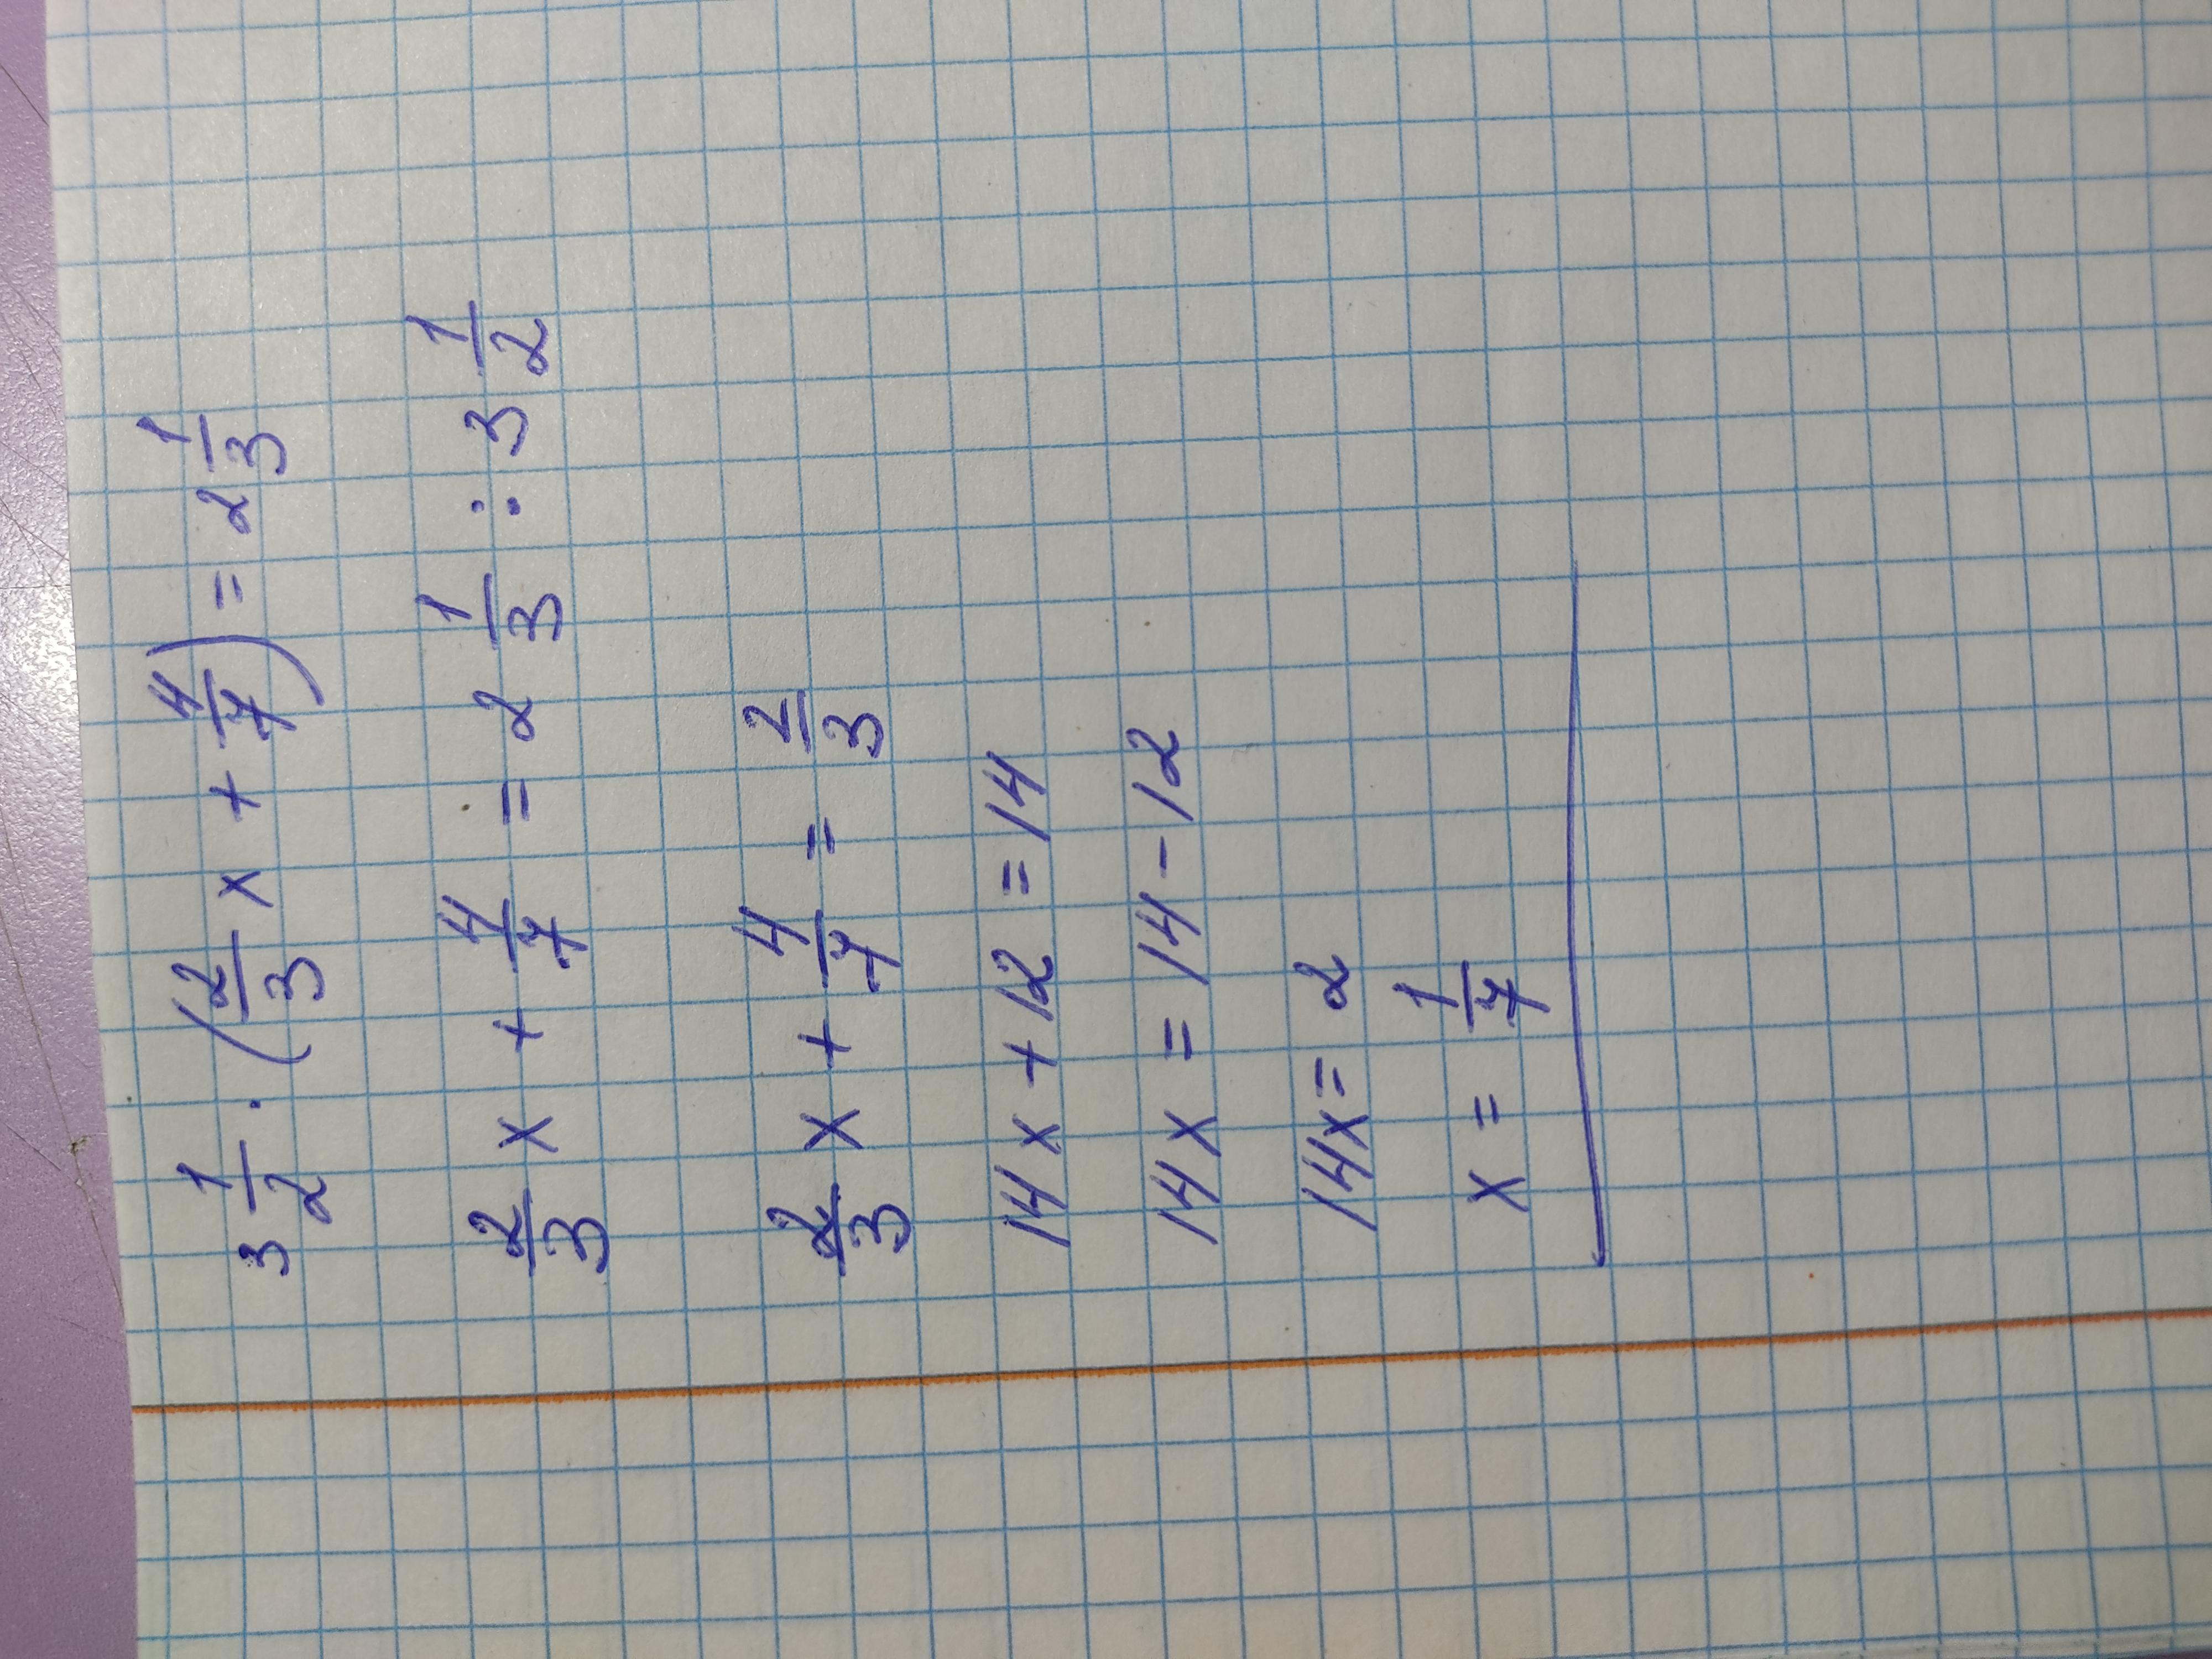 3 1/2 · (2/3 x + 4/7) = 2 1/3
2/3 x + 4/7 = 2 1/3 : 3 1/2
2/3 x + 4/7 = 2/3
14x + 12 = 14
14x = 14 - 12
14x = 2
x = 1/7